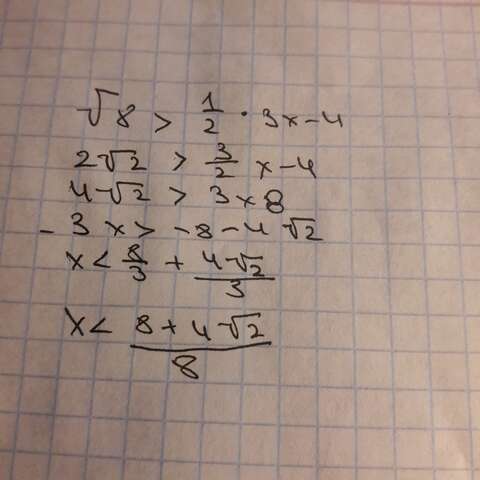 √8 > 1/2 · 3x-4
2√2 > 3/2 x-4
4√2 > 3x8
-3x > -8-4√2
x < 8/3 + 4√2/3
x < 8+4√2/8